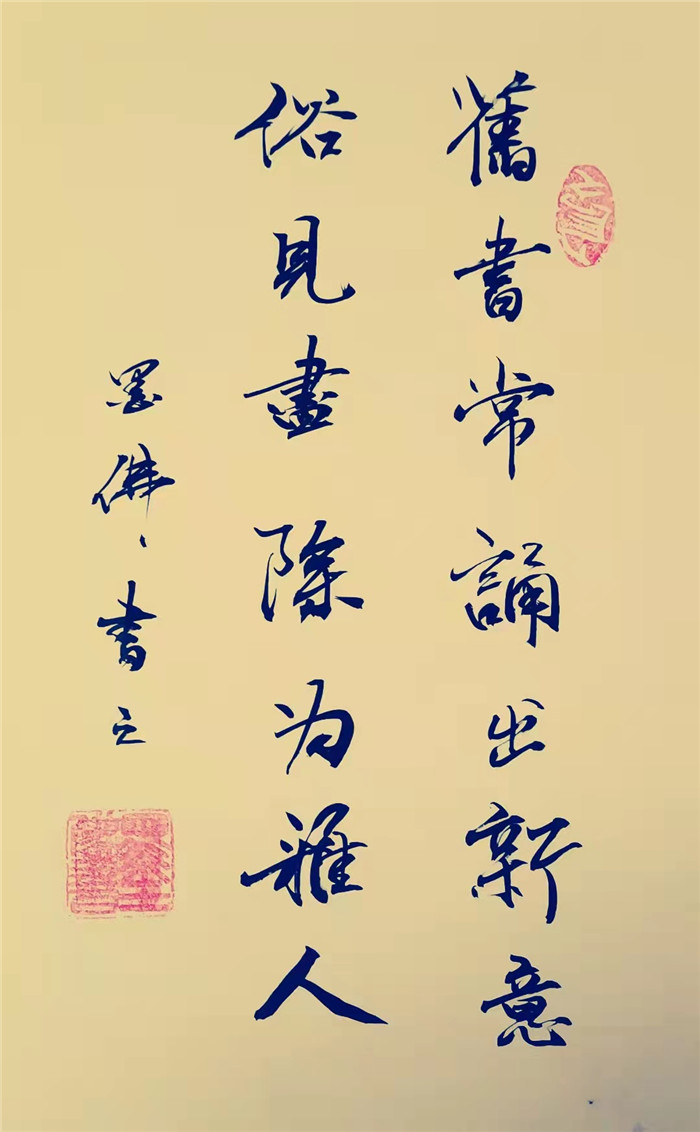 舊書常誦出新意
俗見盡除为雅人
墨佛書之